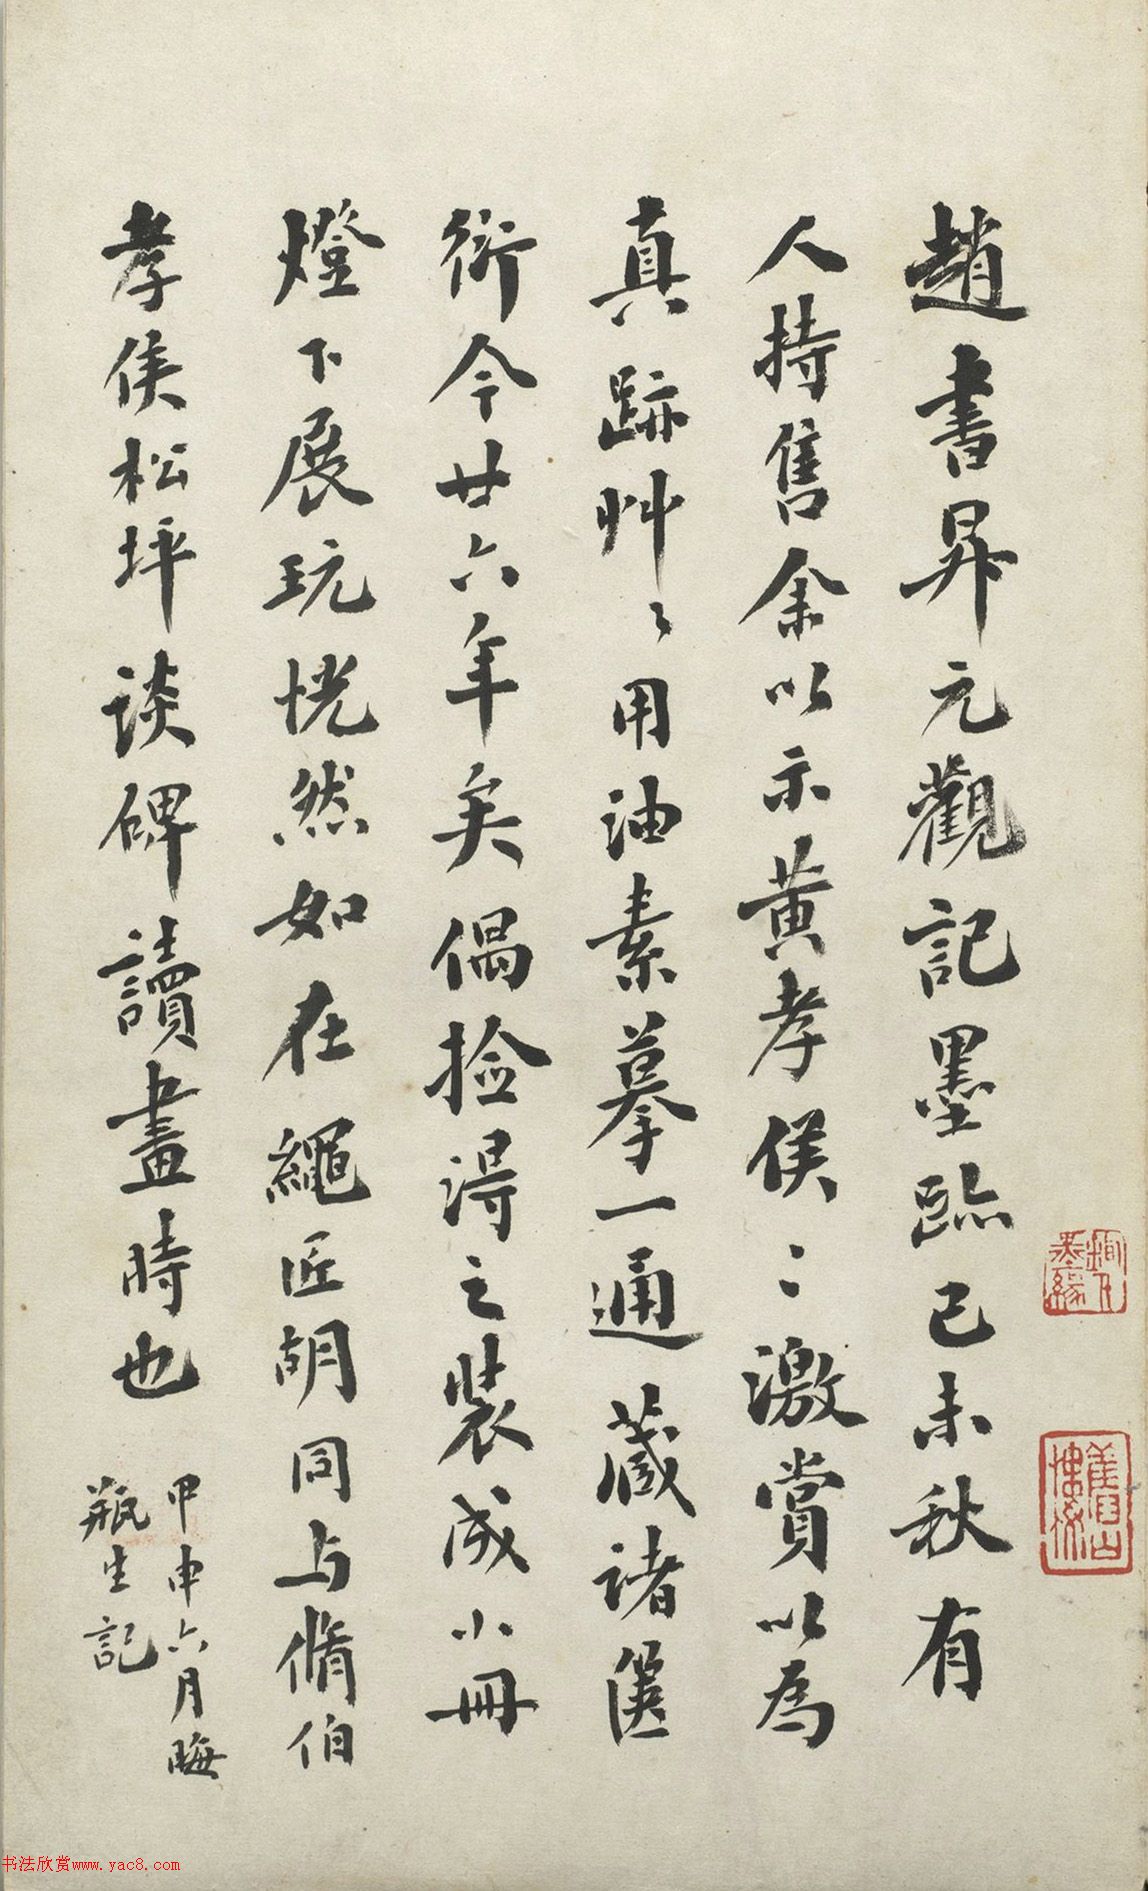 趙書昇元觀記墨跡己未秋有
人持售余以示黄孝侯〻激賞以為
真跡艸〻用油素摹一通藏諸篋
衍今廿六年矣偶捡淂之裝成小冊
燈下展玩恍然如在繩匠胡同与脩伯
孝侯松坪談碑讀畫時也
甲申六月晦
瓶生記
书法欣赏www.yac8.com